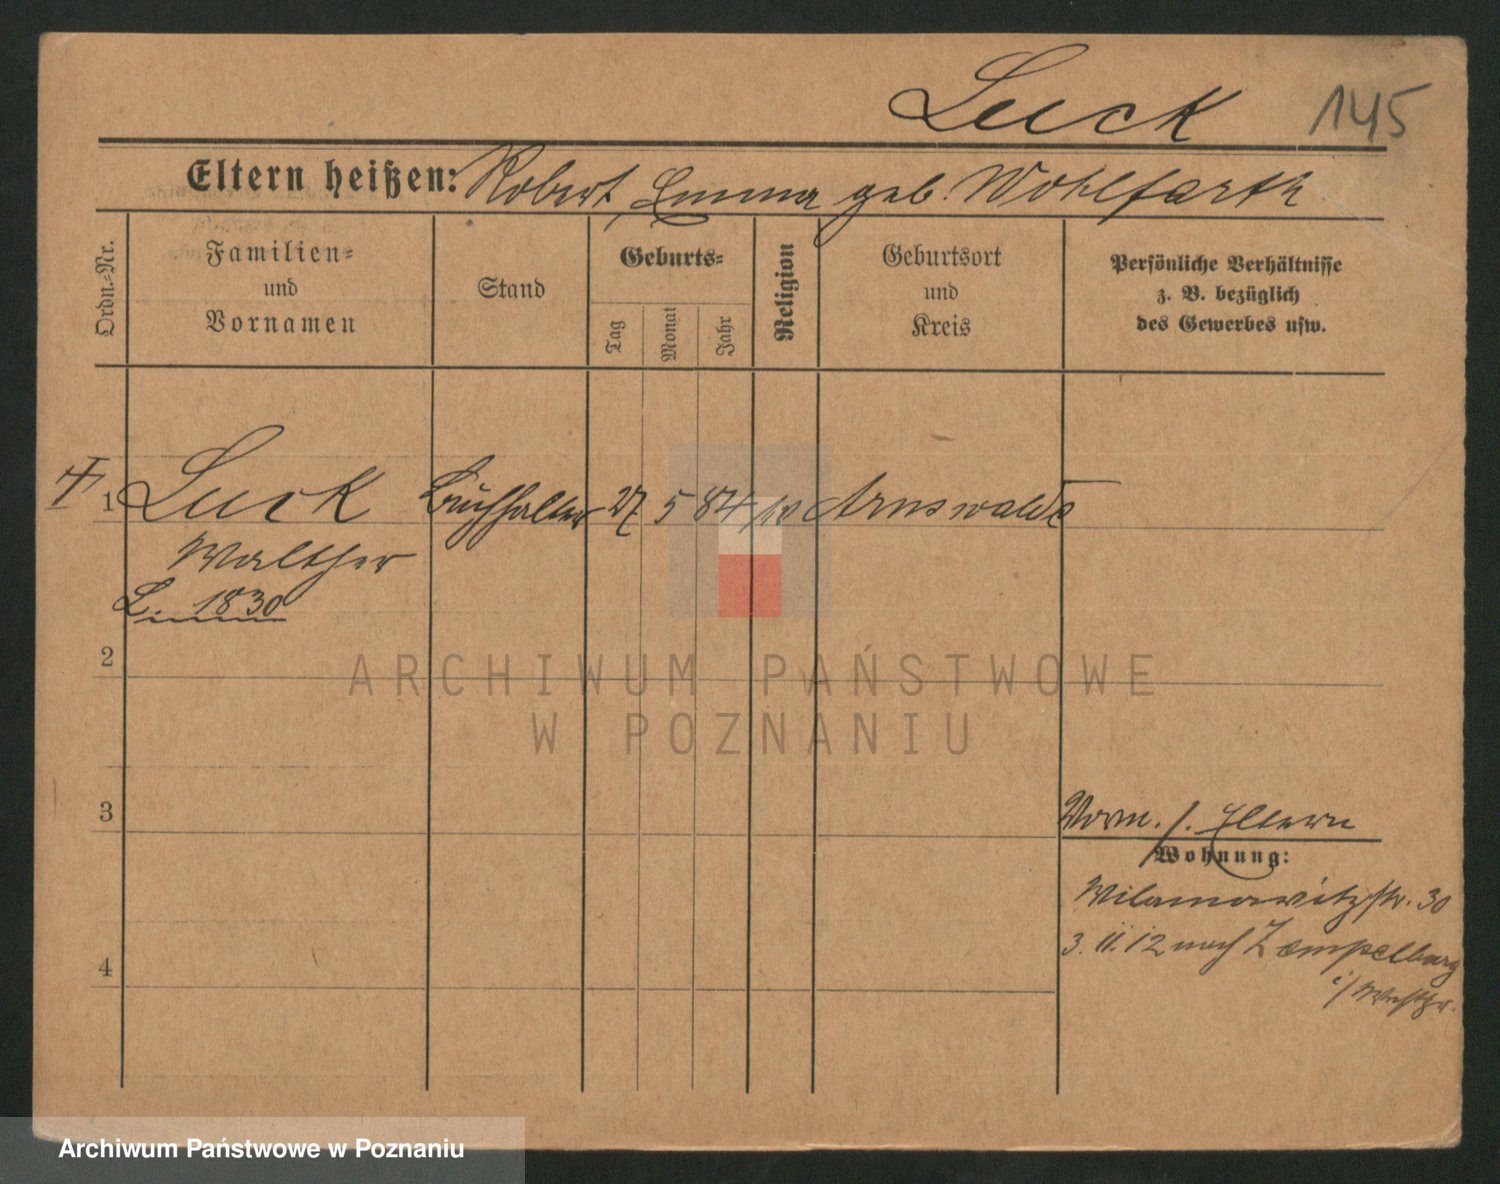 Luck 145
Eltern heißen: Robert, Emma geb. Wohlfarth
Ordn.-Nr.
Familien- und Vornamen
Stand
Geburts-
Tag
Monat
Jahr
Religion
Geburtsort und Kreis
Persönliche Verhältnisse
z. B. bezüglich
des Gewerbes usw.
1 Luck Buchhalter 27 5 84 Arnswalde
Walther
L. 1830
2
ARCHIWUM PAŃSTWOWE
W POZNANIU
3
Vorm. s. Eltern
Wohnung:
Wilamowitzstr. 30
3.11.12 nach Zempelburg
i/ Westpr.
4
Archiwum Państwowe w Poznaniu